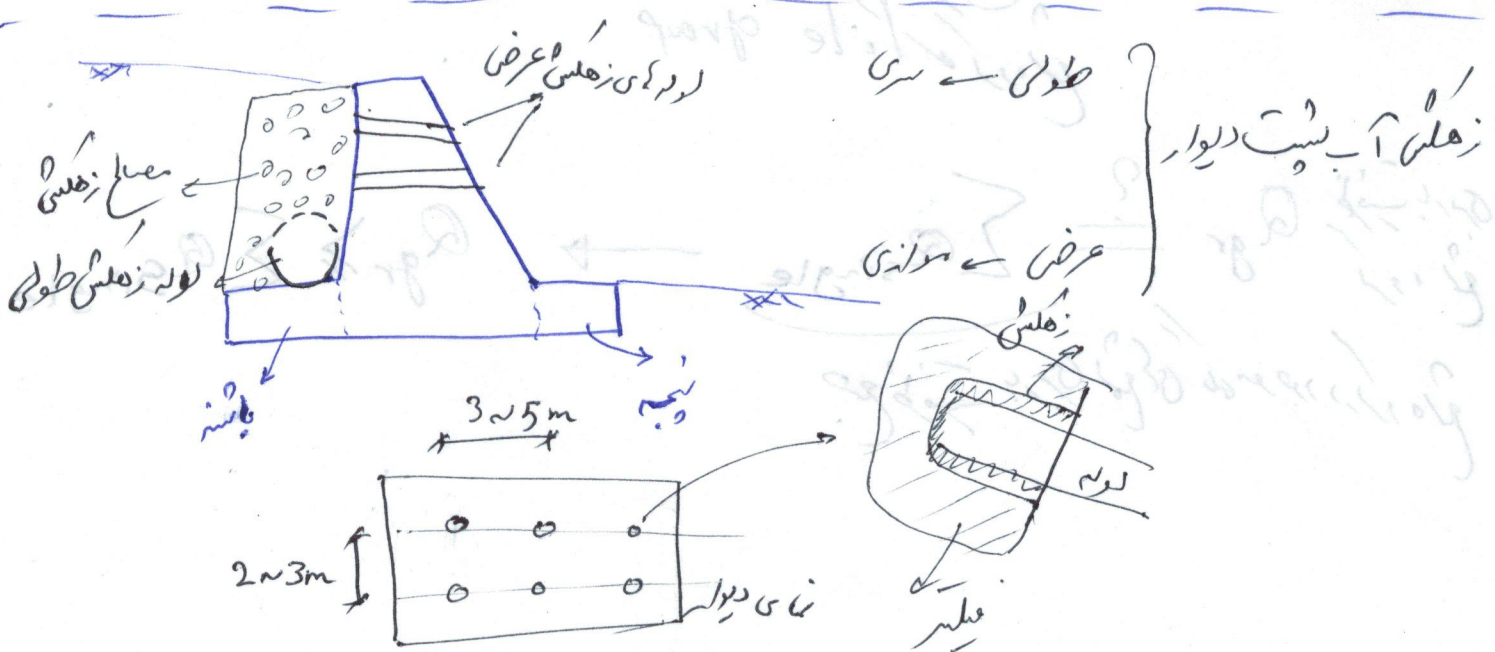 زهکشی آب پشت دیوار
طولی ← سری
عرضی ← موازی
لوله های زهکشی عرضی
مصالح زهکشی
لوله زهکشی طولی
پاشنه
پنجه
3~5 m
2~3m
نمای دیوار
زهکشی
لوله
فیلتر